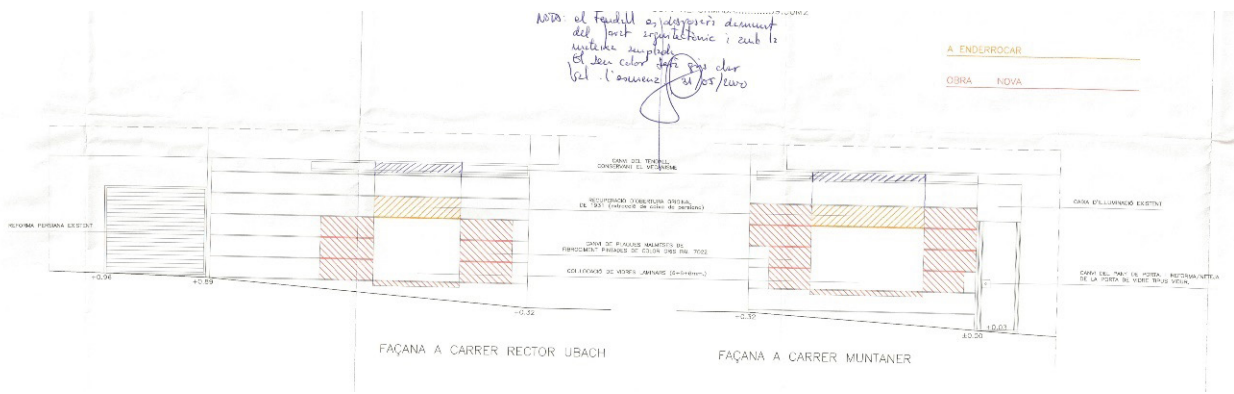 NOTA: el Tendall es disposarà damunt
del paret arquitectònic i amb la
mateixa amplada
El seu color serà gris clar
31/05/2000
A ENDERROCAR
OBRA NOVA
CANVI DEL TENDALL,
CONSERVANT EL MECANISME
RECUPERACIÓ D'OBERTURA ORIGINAL
DE 1931 (retrocció de caixa de persiana)
CANVI DE PLAQUES MALMESES DE
FIBROCIMENT PINTADES DE COLOR GRIS RAL 7022
COL·LOCACIÓ DE VIDRES LAMINARS
REFORMA PERSIANA EXISTENT
CAIXA D'IL·LUMINACIÓ EXISTENT
CANVI DEL PANY DE PORTA I REFORMA/NETEJA
DE LA PORTA DE VIDRE
+0.96
+0.89
-0.32
-0.39
+0.50
+0.03
FAÇANA A CARRER RECTOR UBACH
FAÇANA A CARRER MUNTANER